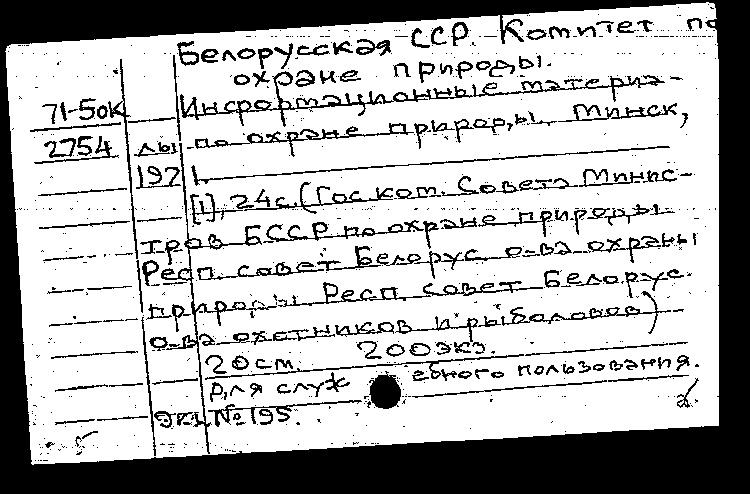 Белорусская ССР. Комитет по
охране природы.
71-5ок Информационные материа-
2754 лы по охране природы. Минск,
1971.
[1], 24с. (Гос ком. Совета Минис-
тров БССР по охране природы.
Респ. совет Белорус. о-ва охраны
природы Респ. совет Белорус.
о-ва охотников и рыболовов)
20см. 200экз.
Для служебного пользования.
Экз. №195.
2.
5